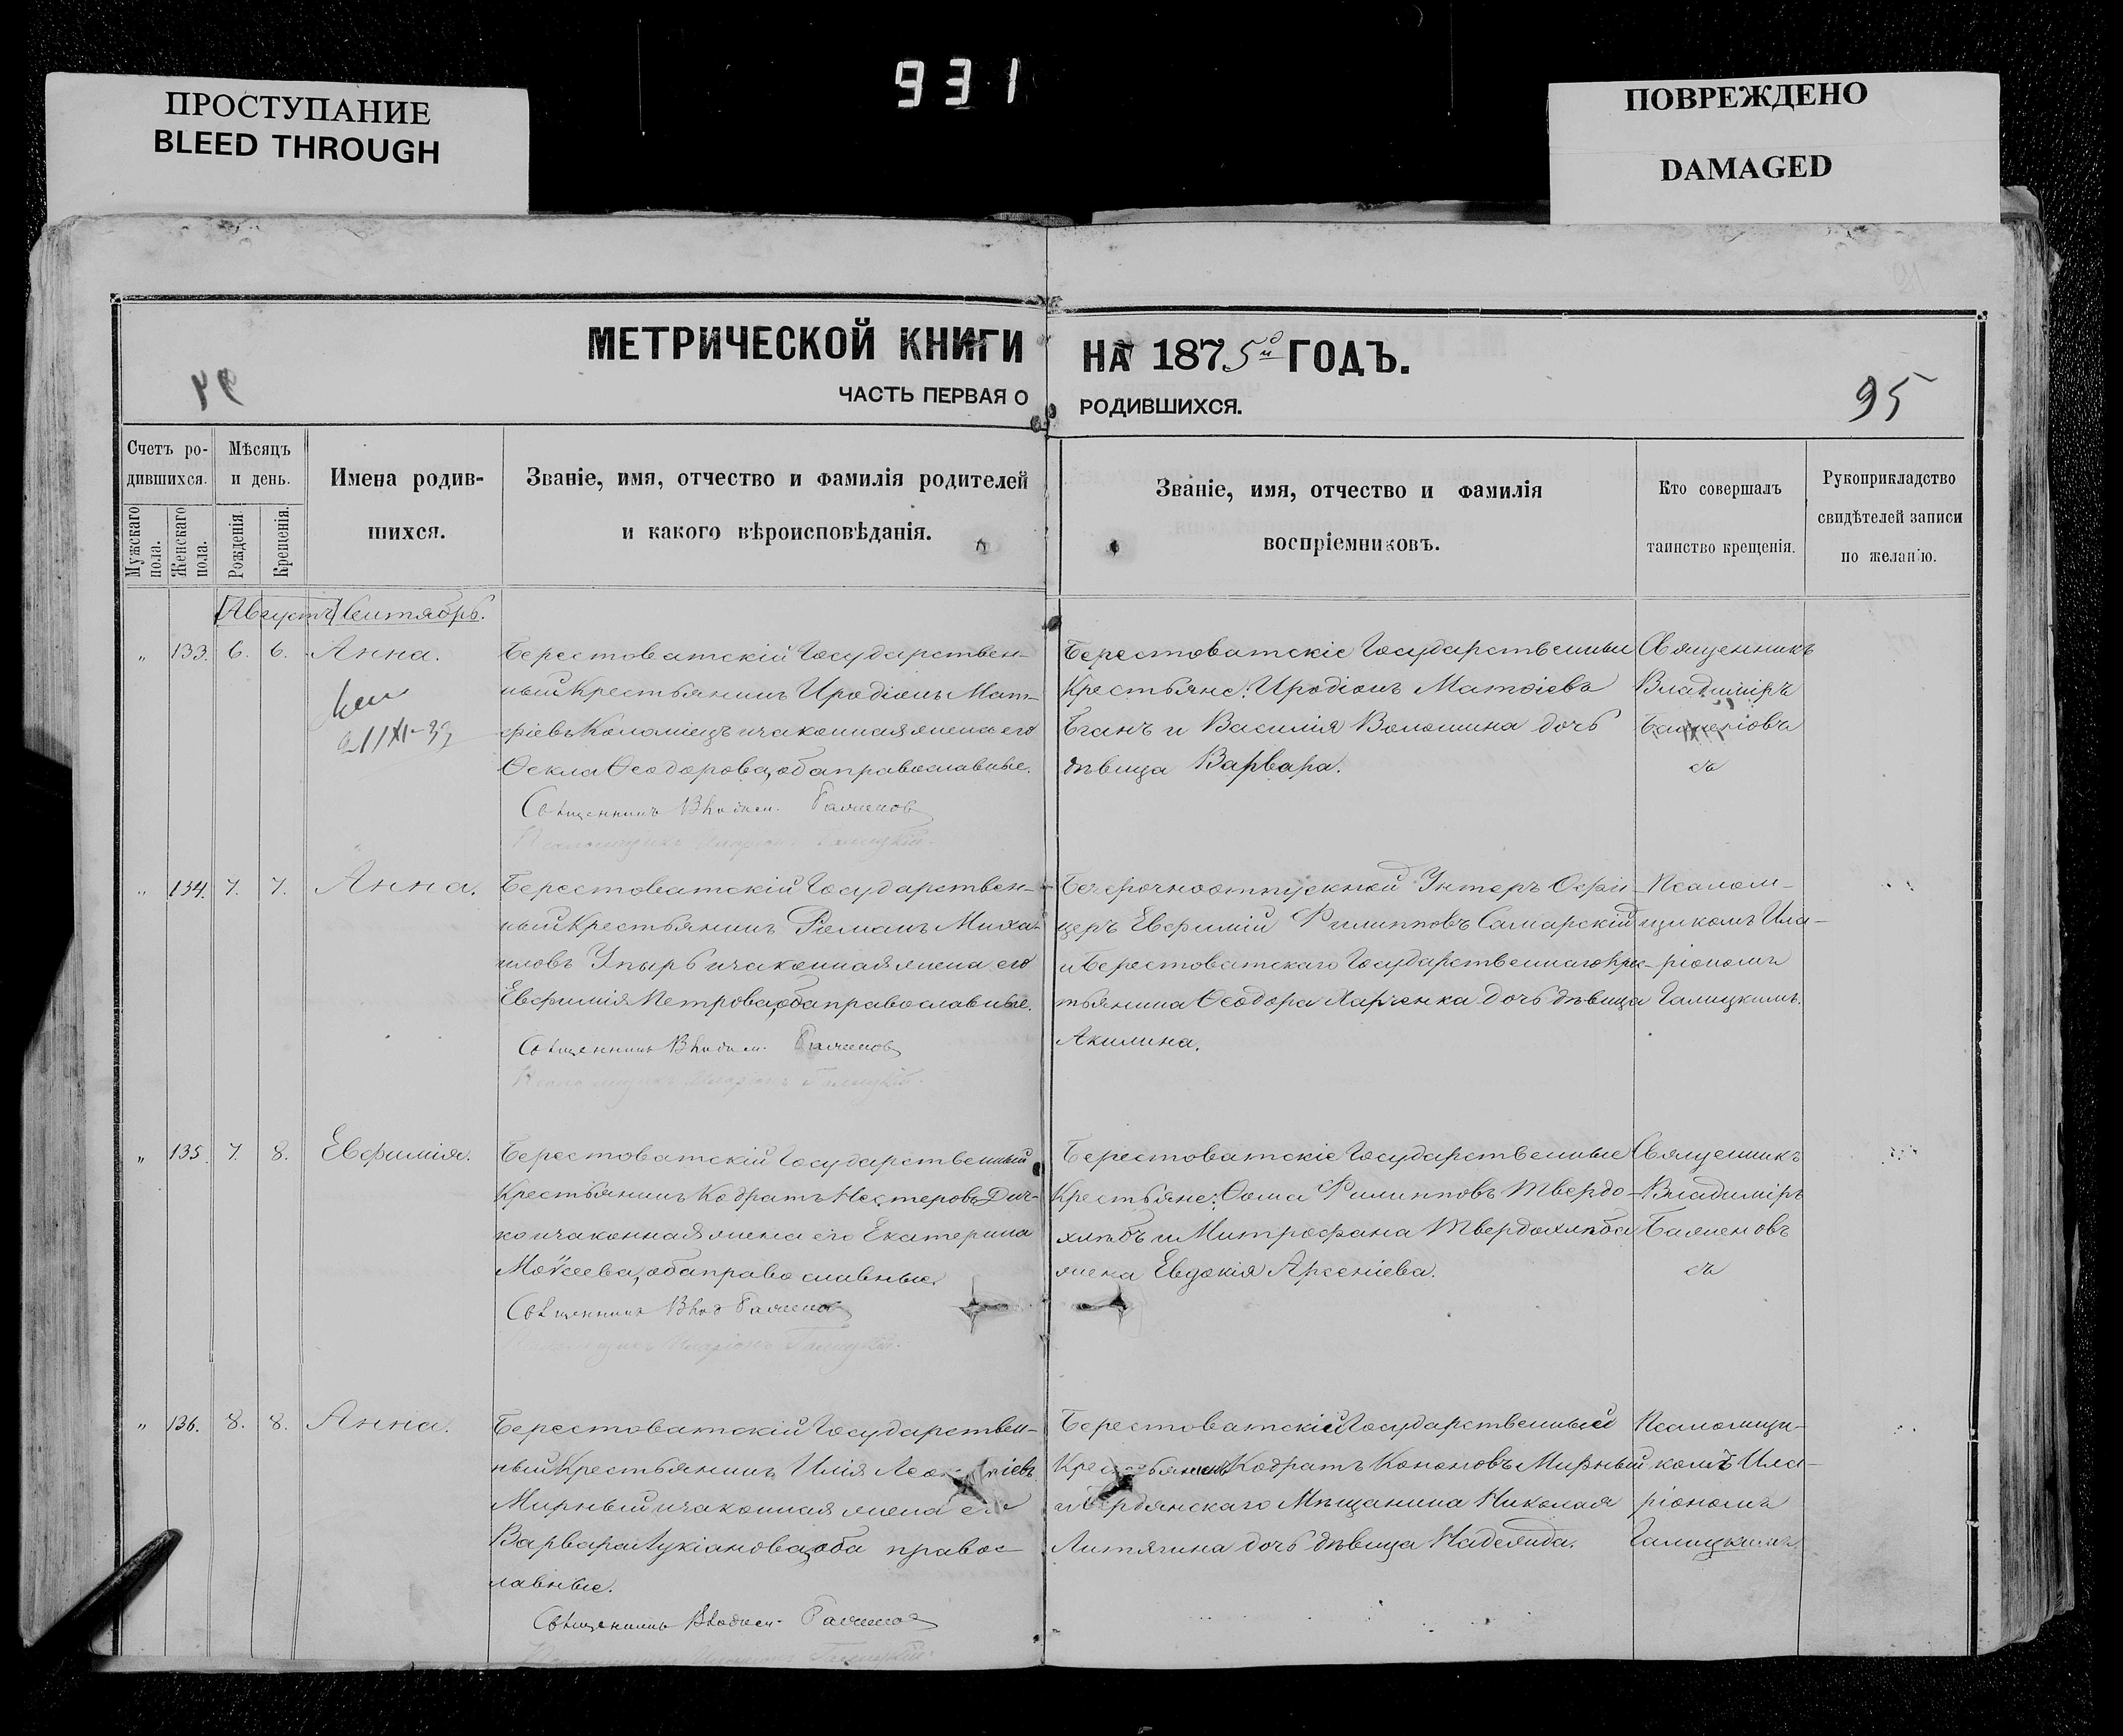 931
ПРОСТУПАНИЕ
BLEED THROUGH
ПОВРЕЖДЕНО
DAMAGED
МЕТРИЧЕСКОЙ КНИГИ НА 1875й ГОДЪ.
ЧАСТЬ ПЕРВАЯ О РОДИВШИХСЯ.
95
Счетъ ро-
дившихся.
Мужскаго пола.
Женскаго пола.
Мѣсяцъ
и день.
Рожденія.
Крещенія.
Имена родив-
шихся.
Званіе, имя, отчество и фамилія родителей
и какого вѣроисповѣданія.
Званіе, имя, отчество и фамилія
воспріемниковъ.
Кто совершалъ
таинство крещенія.
Рукоприкладство
свидѣтелей записи
по желанію.
[Августъ] Сентябрь.
„ 133. 6. 6. Анна.
Берестоватскій Государствен-
ный Крестьянинъ Иродіонъ Мат-
фіевъ Коломіецъ и законная жена его
Ѳекла Ѳеодорова, оба православные.
Священникъ Владим. Баженов
Псаломщикъ Иларіонъ Галицкій.
Берестоватскіе Государственные
Крестьяне: Иродіонъ Матѳіевъ
Бганъ и Василія Волошина дочь
дѣвица Варвара.
Священникъ
Владиміръ
„ 134. 7. 7. Анна.
Берестоватскій Государствен-
ный Крестьянинъ Романъ Миха-
иловъ Упырь и законная жена его
Евфимія Петрова, оба православные.
Священникъ Владим. Баженов
Псаломщикъ Иларіонъ Галицкій.
Безсрочноотпускной Унтеръ Офи-
церъ Евфимій Филипповъ Самарскій
и Берестоватскаго Государственнаго Крес-
тьянина Ѳеодора Харченка дочь дѣвица
Акилина.
Псалом-
щикомъ Ила-
ріономъ
Галицкимъ.
„ 135. 7. 8. Евфимія.
Берестоватскій Государственный
Крестьянинъ Кодратъ Нестеровъ Дич-
ко и законная жена его Екатерина
Моѵсеева, оба православные.
Священникъ Влад Баженов
Псаломщикъ Иларіонъ Галицкій.
Берестоватскіе Государственные
Крестьяне: Ѳома Филипповъ Твердо-
хлѣбъ и Митрофана Твердохлѣба
жена Евдокія Арсеніева.
Священникъ
Владиміръ
Баженовъ
„ 136. 8. 8. Анна.
Берестоватскій Государствен-
ный Крестьянинъ Илія
Мирный и законная жена его
Варвара Лукіанова, оба правос-
лавные.
Священникъ Владим. Баженов
Псаломщикъ Иларіонъ Галицкій.
Берестоватскій Государственный
Крестьянинъ Кодратъ Кононовъ Мирный
и Бердянскаго Мѣщанина Николая
Литягина дочь дѣвица Надежда.
Псаломщи-
комъ Ила-
ріономъ
Галицкимъ.